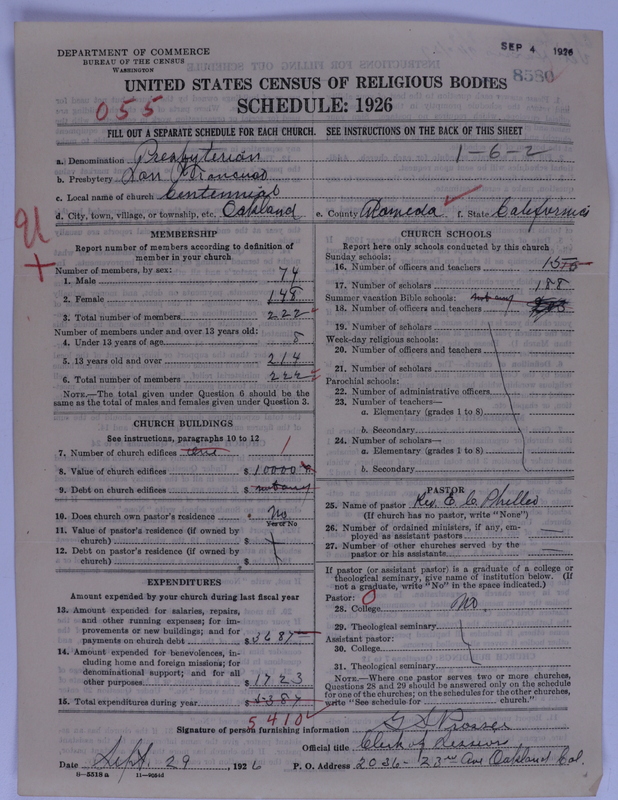 DEPARTMENT OF COMMERCE
BUREAU OF THE CENSUS
WASHINGTON
SEP 4 1926
8580
UNITED STATES CENSUS OF RELIGIOUS BODIES
SCHEDULE: 1926
055
FILL OUT A SEPARATE SCHEDULE FOR EACH CHURCH. SEE INSTRUCTIONS ON THE BACK OF THIS SHEET
a. Denomination Presbyterian 1-6-2
b. Presbytery San Francisco
c. Local name of church Centennial
d. City, town, village, or township, etc. Oakland e. County Alameda f. State California
MEMBERSHIP
Report number of members according to definition of
member in your church
Number of members, by sex:
1. Male 74
2. Female 148
3. Total number of members 222
Number of members under and over 13 years old:
4. Under 13 years of age 8
5. 13 years old and over 214
6. Total number of members 222
NOTE.—The total given under Question 6 should be the
same as the total of males and females given under Question 3.
CHURCH BUILDINGS
See instructions, paragraphs 10 to 12
7. Number of church edifices one 1
8. Value of church edifices $ 10000
9. Debt on church edifices $ not any
10. Does church own pastor's residence No
Yes or No
11. Value of pastor's residence (if owned by
church) $
12. Debt on pastor's residence (if owned by
church) $
EXPENDITURES
Amount expended by your church during last fiscal year
13. Amount expended for salaries, repairs,
and other running expenses; for im-
provements or new buildings; and for
payments on church debt $ 3687
14. Amount expended for benevolences, in-
cluding home and foreign missions; for
denominational support; and for all
other purposes $ 1723
15. Total expenditures during year $
5410
CHURCH SCHOOLS
Report here only schools conducted by this church
Sunday schools:
16. Number of officers and teachers 15
17. Number of scholars 188
Summer vacation Bible schools: not any
18. Number of officers and teachers
19. Number of scholars
Week-day religious schools:
20. Number of officers and teachers
21. Number of scholars
Parochial schools:
22. Number of administrative officers
23. Number of teachers—
a. Elementary (grades 1 to 8)
b. Secondary
24. Number of scholars—
a. Elementary (grades 1 to 8)
b. Secondary
PASTOR
25. Name of pastor Rev. E. C. Philleo
(If church has no pastor, write "None")
26. Number of ordained ministers, if any, em-
ployed as assistant pastors
27. Number of other churches served by the
pastor or his assistants
If pastor (or assistant pastor) is a graduate of a college or
theological seminary, give name of institution below. (If
not a graduate, write "No" in the space indicated.)
Pastor: 0
28. College No
29. Theological seminary
Assistant pastor:
30. College
31. Theological seminary
NOTE.—Where one pastor serves two or more churches,
Questions 28 and 29 should be answered only on the schedule
for one of the churches; on the schedules for the other churches,
write "See schedule for church."
Signature of person furnishing information G S Prosser
Official title Clerk of Session
Date Sept. 29, 1926 P. O. Address 2036-23rd Ave Oakland Cal.
8-5518 a 11-9054d